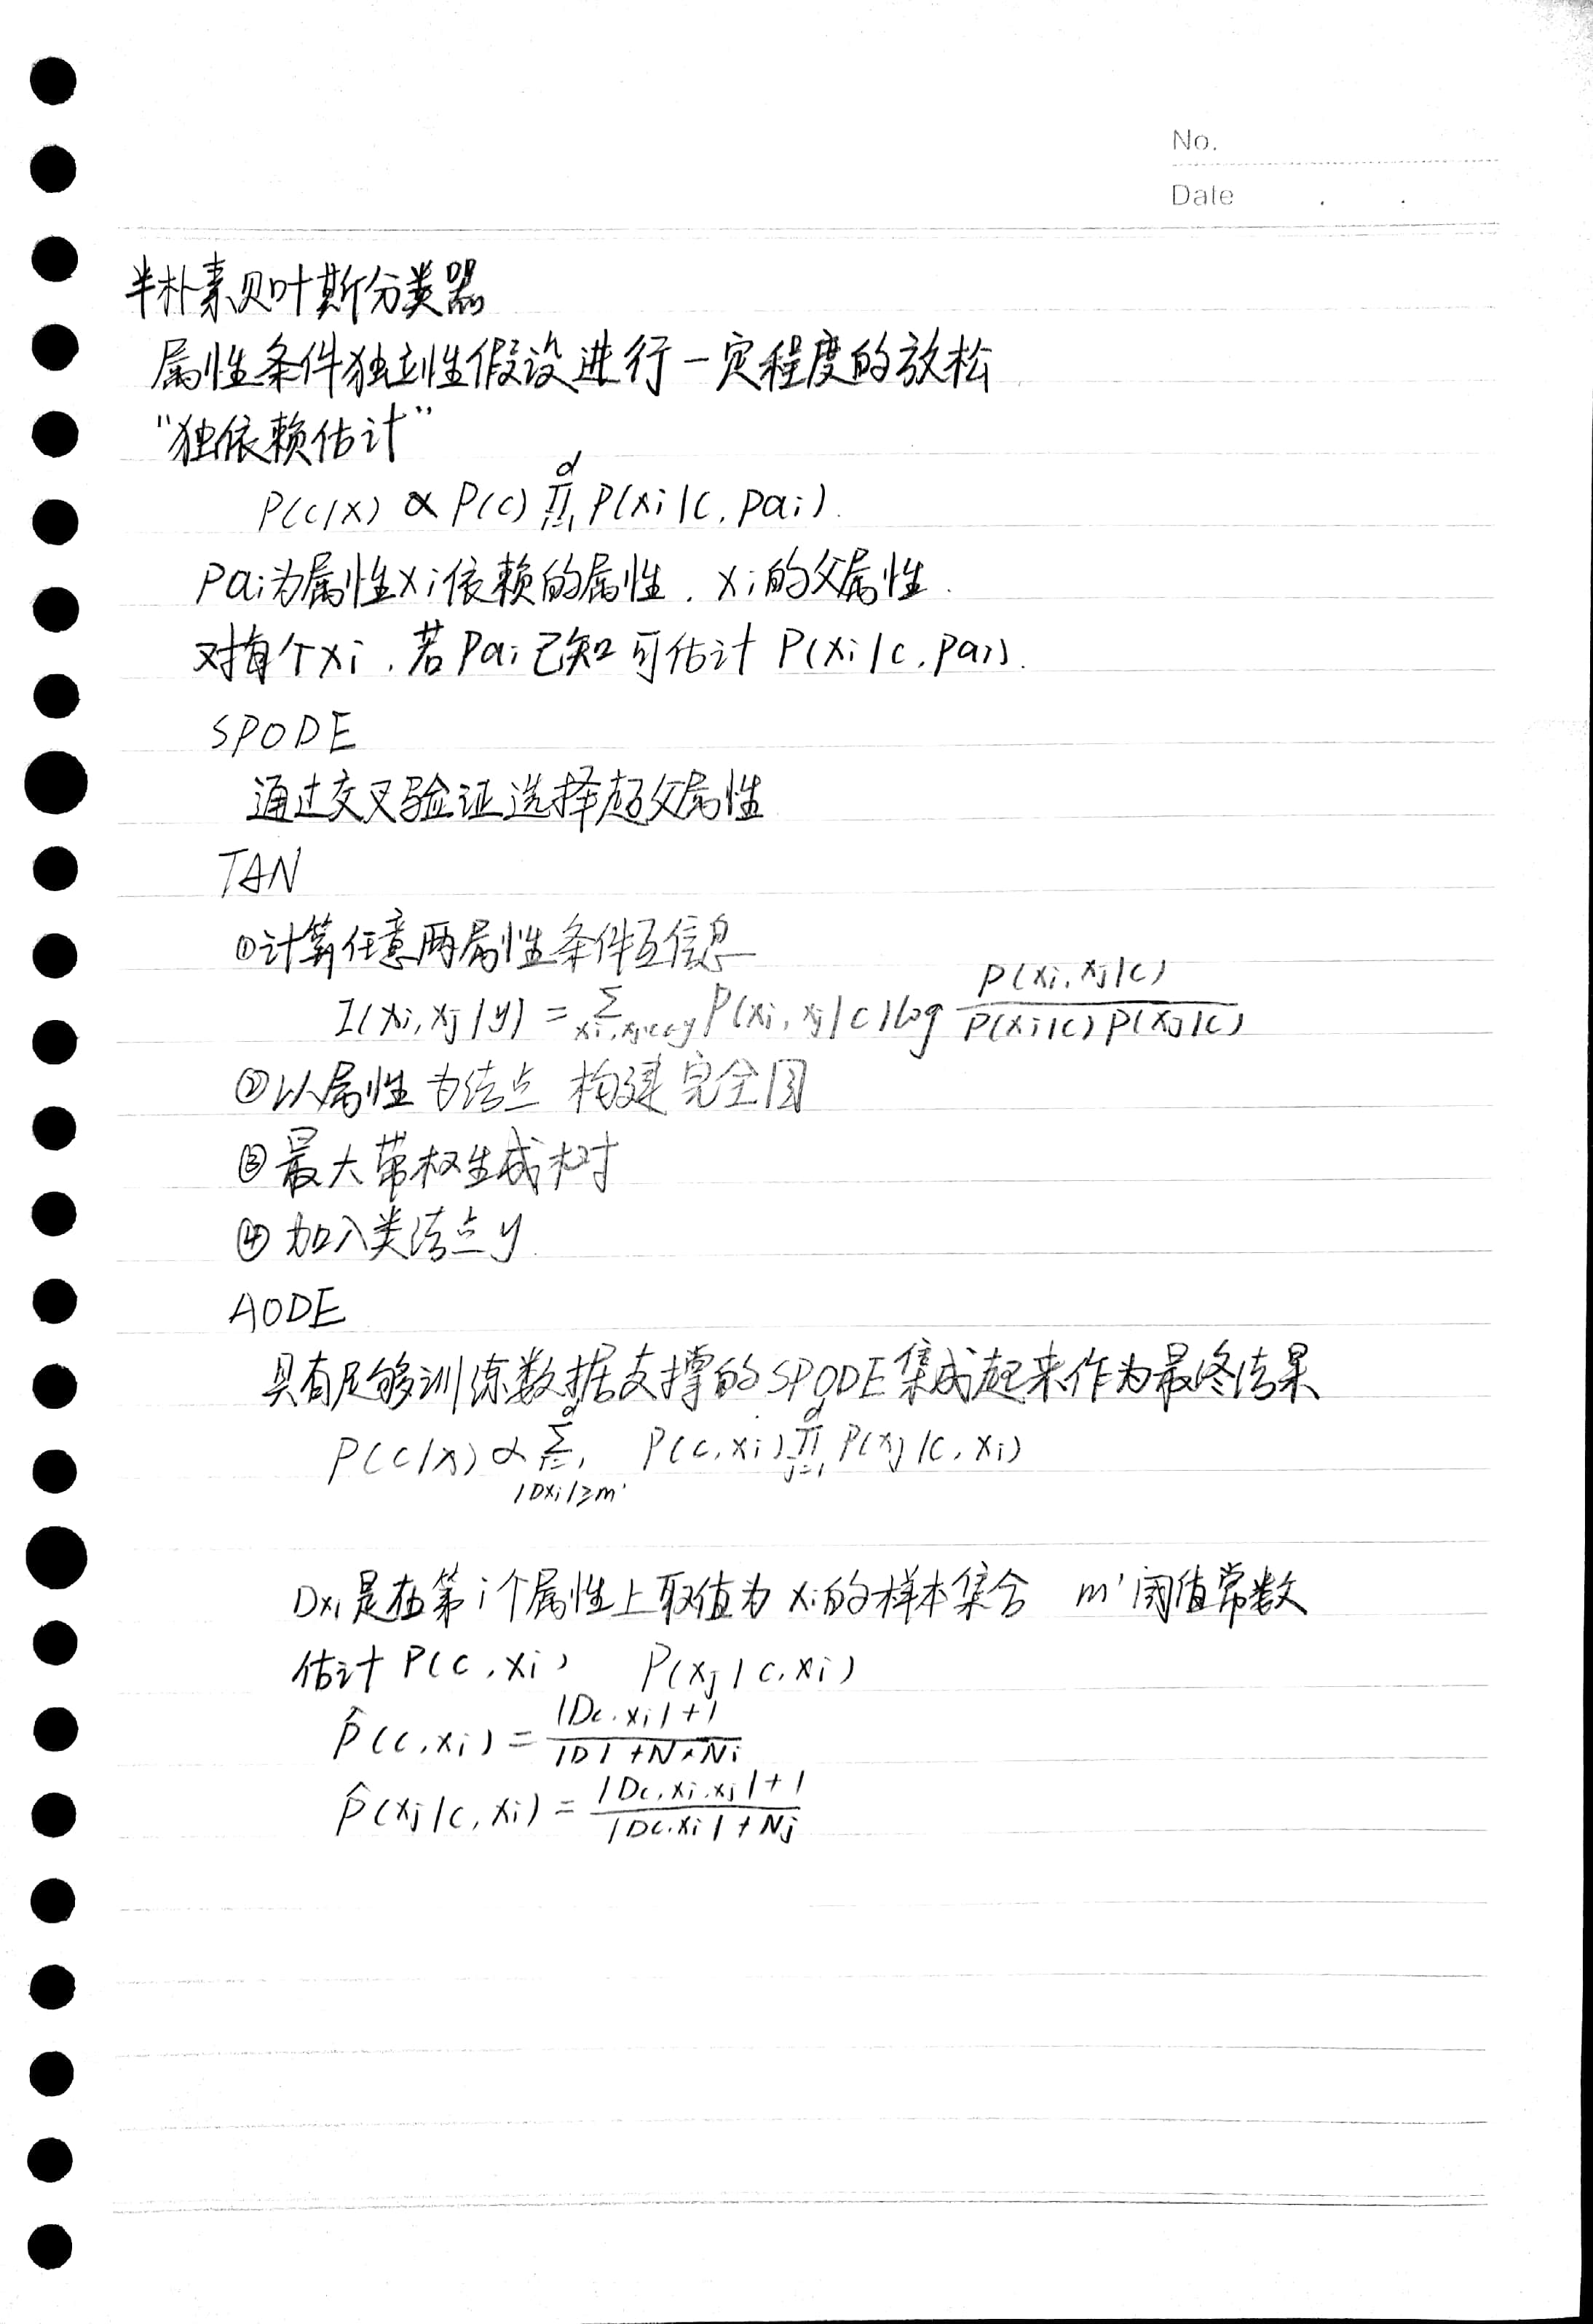 No.
Date . .
半朴素贝叶斯分类器
属性条件独立性假设进行一定程度的放松
“独依赖估计”
P(c|x) ∝ P(c) ∏_{i=1}^{d} P(xi|c, pai).
Pai为属性xi依赖的属性. xi的父属性.
对每个xi, 若Pai已知 可估计 P(xi|c, pai).
SPODE
通过交叉验证选择超父属性
TAN
①计算任意两属性条件互信息
I(xi, xj|y) = ∑_{xi, xj; c∈y} P(xi, xj|c) log \frac{P(xi, xj|c)}{P(xi|c) P(xj|c)}
②以属性为结点 构建完全图
③最大带权生成树
④加入类结点y
AODE
具有足够训练数据支撑的SPODE集成起来作为最终结果
P(c|x) ∝ ∑_{i=1, |Dxi|≥m'}^{d} P(c, xi) ∏_{j=1}^{d} P(xj|c, xi)
Dxi是在第i个属性上取值为xi的样本集合 m'阈值常数
估计 P(c, xi) P(xj|c, xi)
P̂(c, xi) = \frac{|Dc,xi|+1}{|D|+N×Ni}
P̂(xj|c, xi) = \frac{|Dc,xi,xj|+1}{|Dc,xi|+Nj}